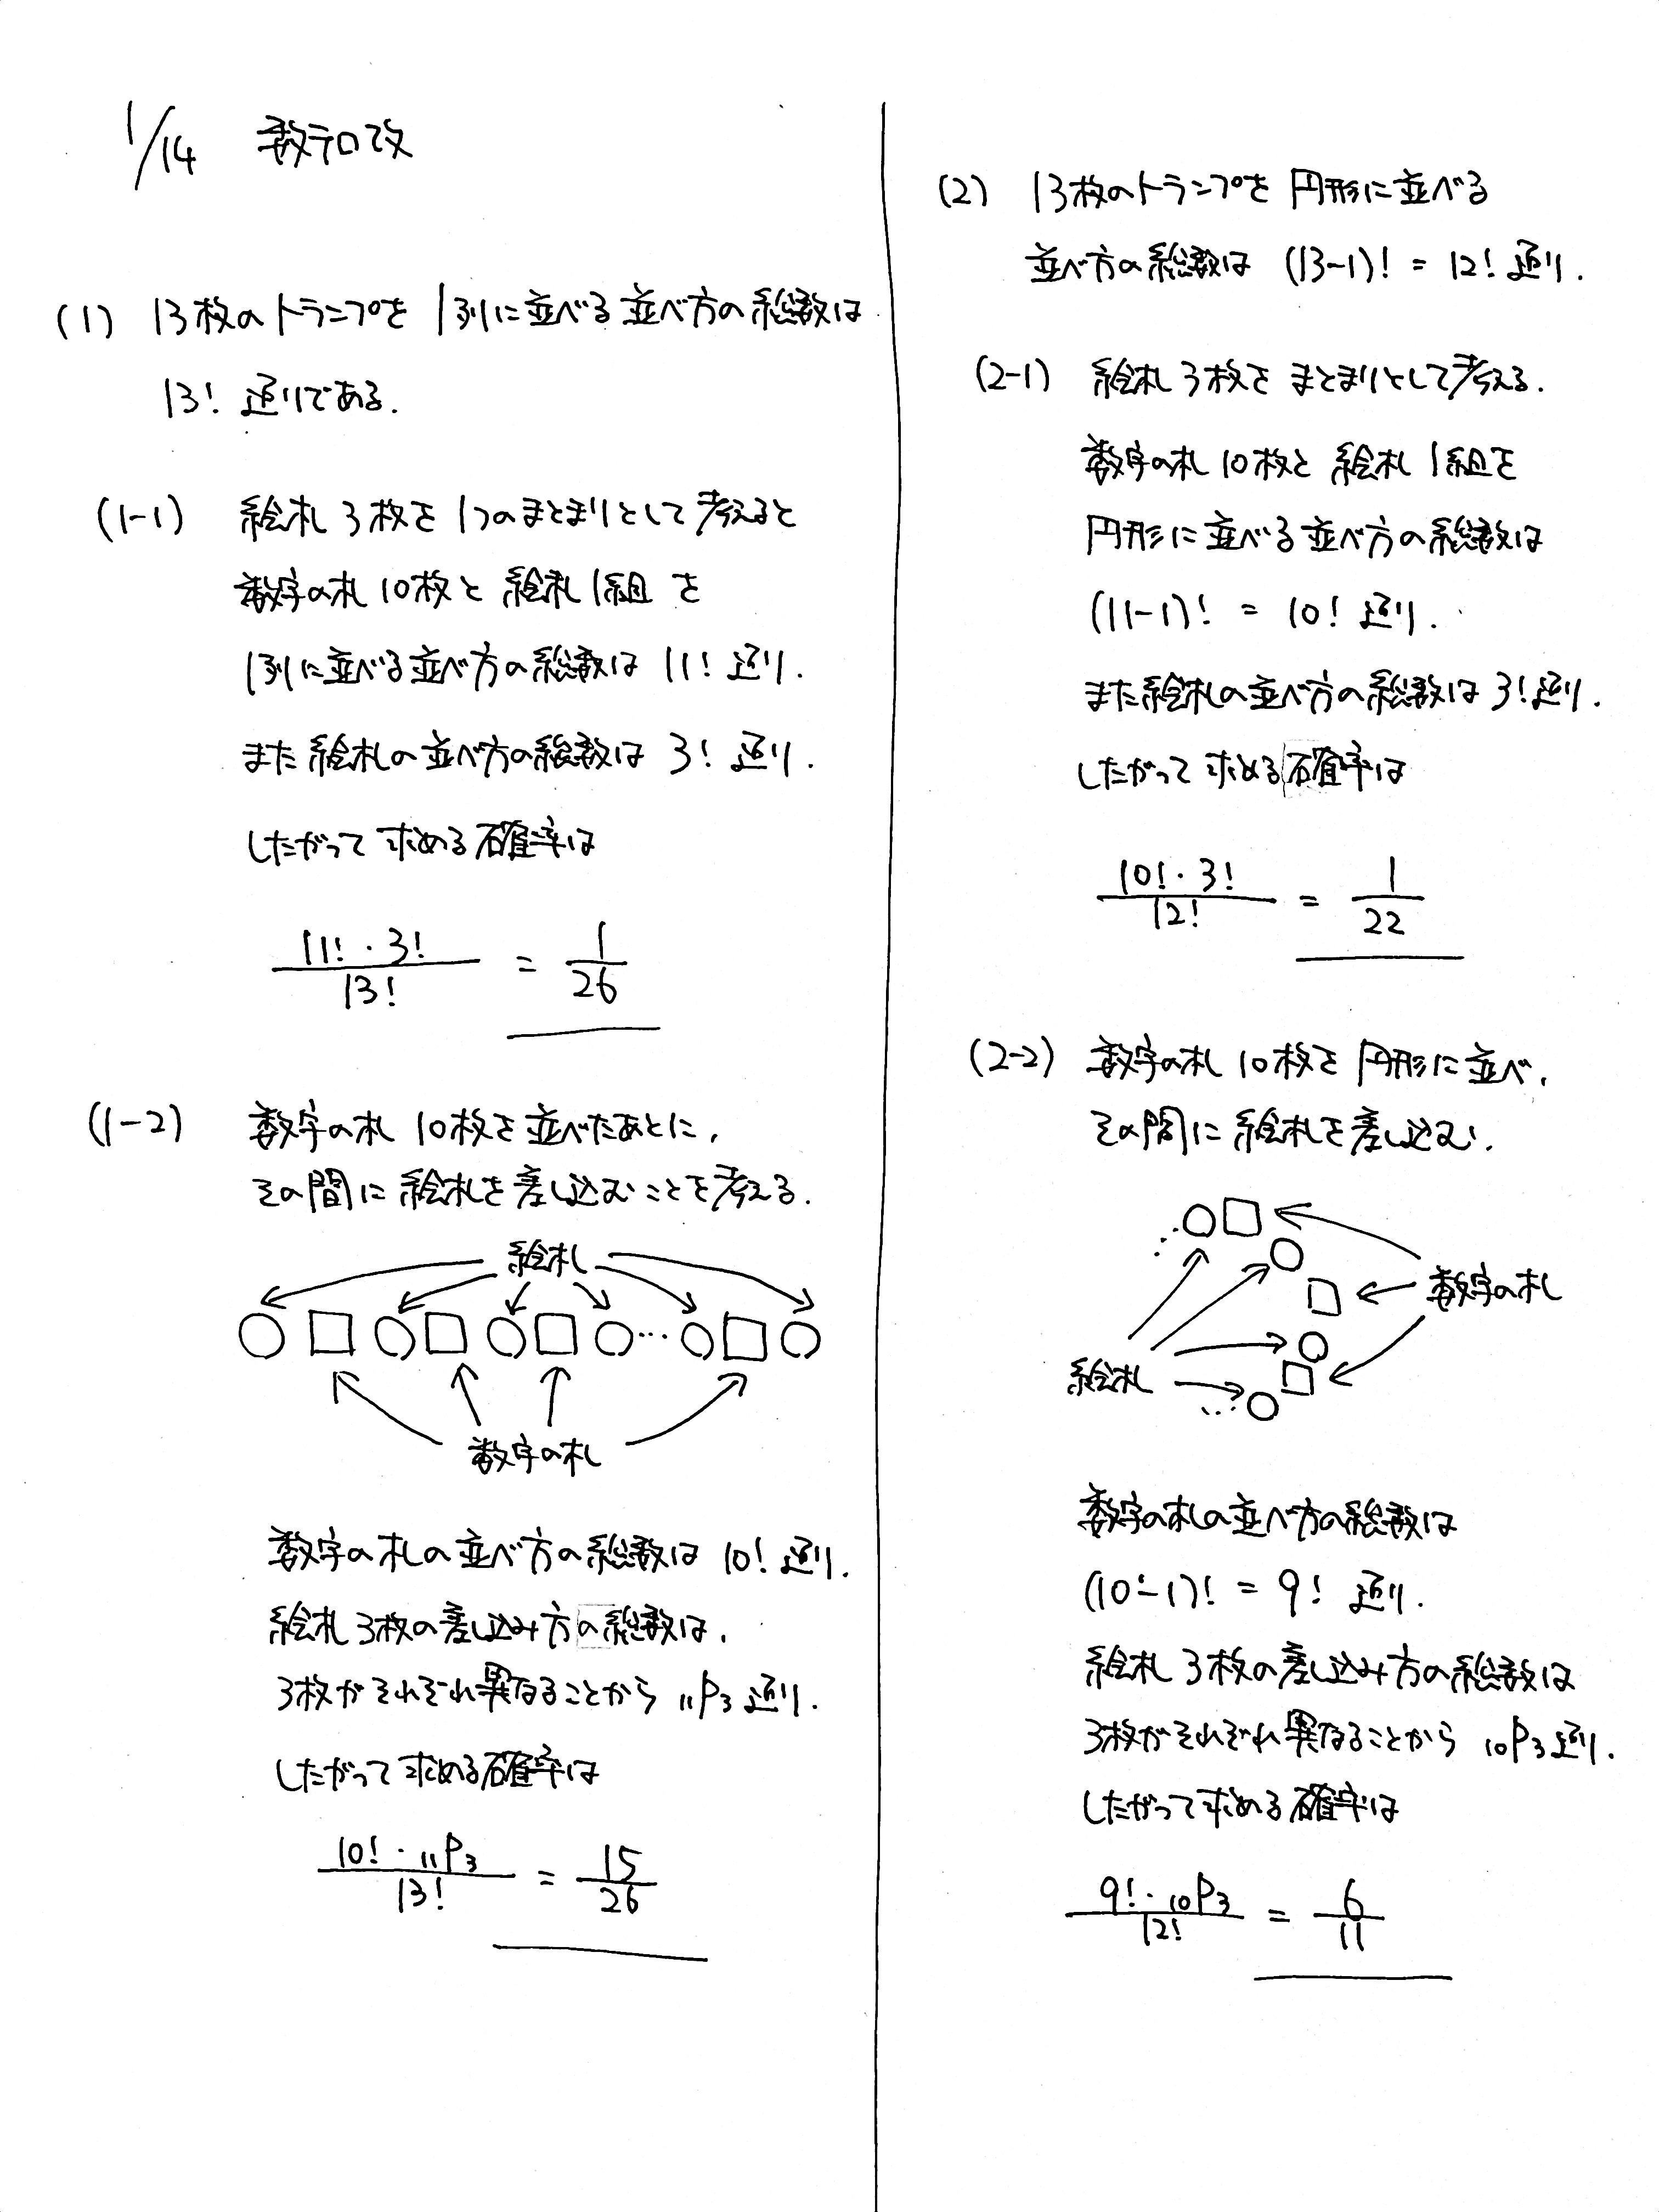 1/14 数テロ改
(1) 13枚のトランプを1列に並べる並べ方の総数は
13! 通りである.
(1-1) 絵札3枚を1つのまとまりとして考えると
数字の札10枚と絵札1組を
1列に並べる並べ方の総数は 11! 通り.
また絵札の並べ方の総数は 3! 通り.
したがって求める確率は
11!・3! / 13! = 1/26
(1-2) 数字の札10枚を並べたあとに,
その間に絵札を差し込むことを考える.
絵札
数字の札
数字の札の並べ方の総数は 10! 通り.
絵札3枚の差し込み方の総数は,
3枚がそれぞれ異なることから ₁₁P₃ 通り.
したがって求める確率は
10!・₁₁P₃ / 13! = 15/26
(2) 13枚のトランプを円形に並べる
並べ方の総数は (13-1)! = 12! 通り.
(2-1) 絵札3枚をまとまりとして考える.
数字の札10枚と絵札1組を
円形に並べる並べ方の総数は
(11-1)! = 10! 通り.
また絵札の並べ方の総数は 3! 通り.
したがって求める確率は
10!・3! / 12! = 1/22
(2-2) 数字の札10枚を円形に並べ,
その間に絵札を差し込む.
数字の札
絵札
数字の札の並べ方の総数は
(10-1)! = 9! 通り.
絵札3枚の差し込み方の総数は
3枚がそれぞれ異なることから ₁₀P₃ 通り.
したがって求める確率は
9!・₁₀P₃ / 12! = 6/11